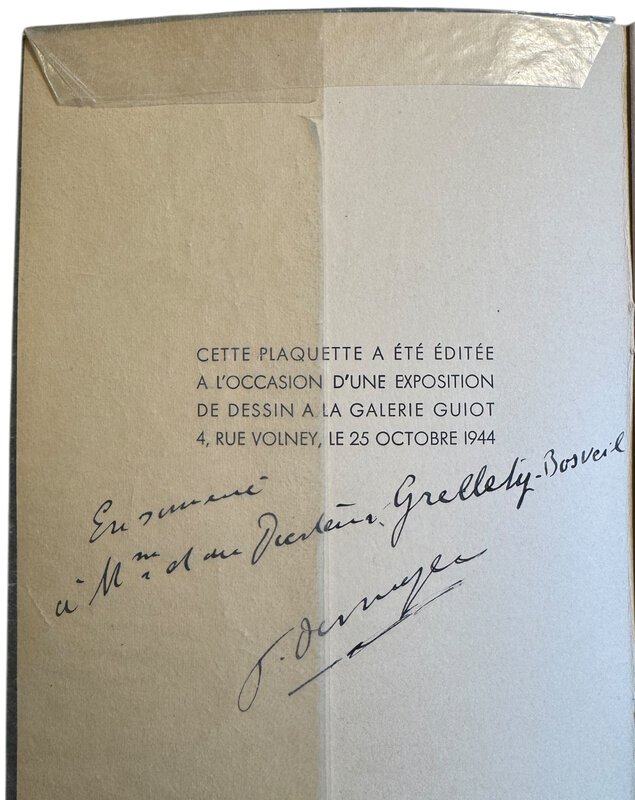 CETTE PLAQUETTE A ÉTÉ ÉDITÉE
A L'OCCASION D'UNE EXPOSITION
DE DESSIN A LA GALERIE GUIOT
4, RUE VOLNEY, LE 25 OCTOBRE 1944
En souvenir
à Mme et au Docteur Grellety-Bosveil
F. Desnoyer